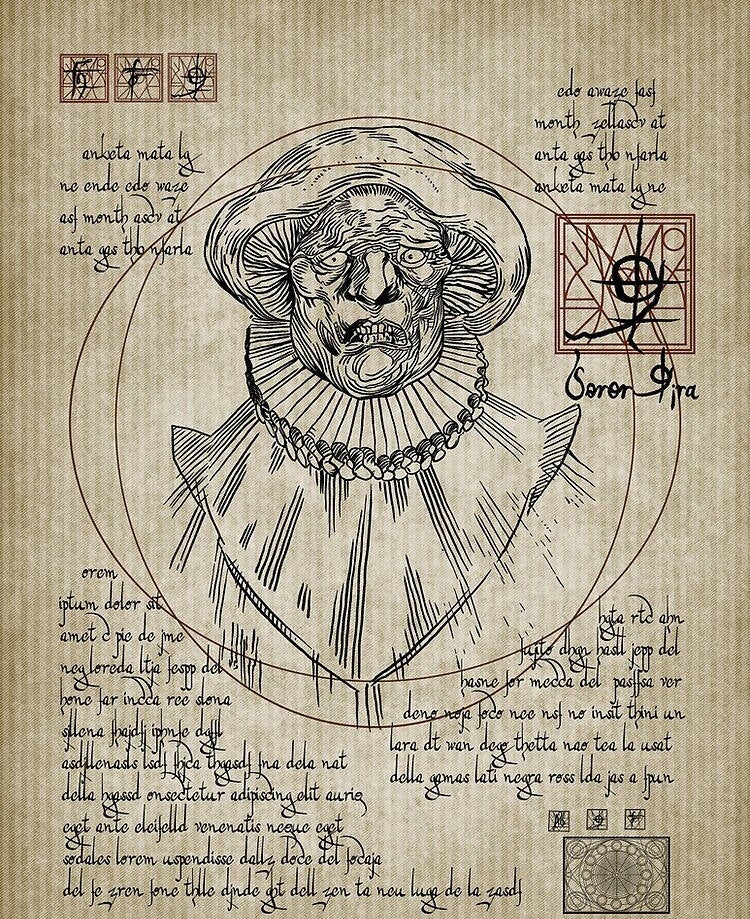 anketa mata lg
ne ende edo waze
asf month asdv at
anta gas tho nfarla
edo awaze fasf
month zellasdv at
anta gas tho nfarla
anketa mata lg ne
Soror
orem
iptum dolor sit
amet c pie de
neg loreda ltja fespp del
hone far incca ree slona
sllena
asdjllenasls lsdf
dela nat
della hgassd onsectetur adipiscing elit auris
eget ante eleifelld venenatis neque eget
sodales lorem uspendisse dallz doce del focaja
del fe zren fone thlle djnde got dell zen ta neu luga de la zasdf
hgta rtd ahn
dhgn hasll jepp del
hasne for mecca del passfsa ver
deno noja foco nee nsf no insit thini un
lara dt wan dego thetta nao tea la usat
della gamas lati negra ross lda jas a fpun